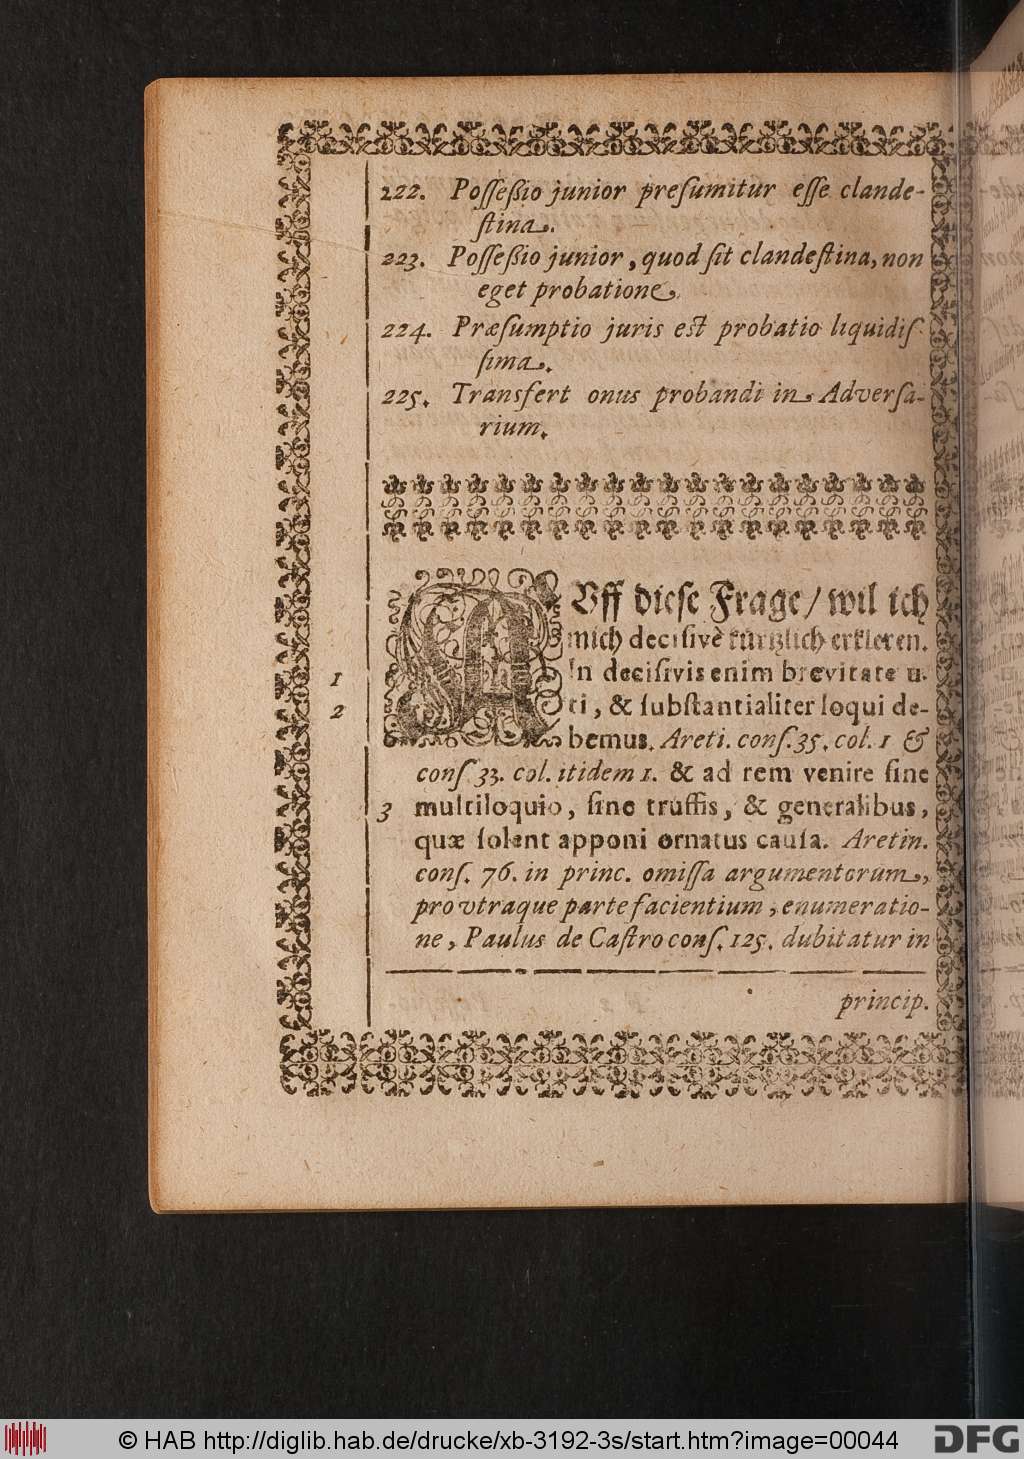 222. Possessio junior presumitur esse clande-
stina.
223. Possessio junior, quod sit clandestina, non
eget probatione.
224. Præsumptio juris est probatio liquidis-
sima.
225. Transfert onus probandi in Adversa-
rium.
AUff diese Frage / wil ich
mich decisivè kürtzlich erkleren.
In decisivis enim brevitate u-
1
ti, & substantialiter loqui de-
2
bemus. Areti. cons. 35. col. 1 &
cons 33. col. itidem 1. & ad rem venire sine
3 multiloquio, sine truffis, & generalibus,
quæ solent apponi ornatus causa. Aretin.
cons. 76. in princ. omissa argumentorum,
pro vtraque parte facientium, enumeratio-
ne, Paulus de Castro cons. 125. dubitatur in
princip.
© HAB http://diglib.hab.de/drucke/xb-3192-3s/start.htm?image=00044
DFG